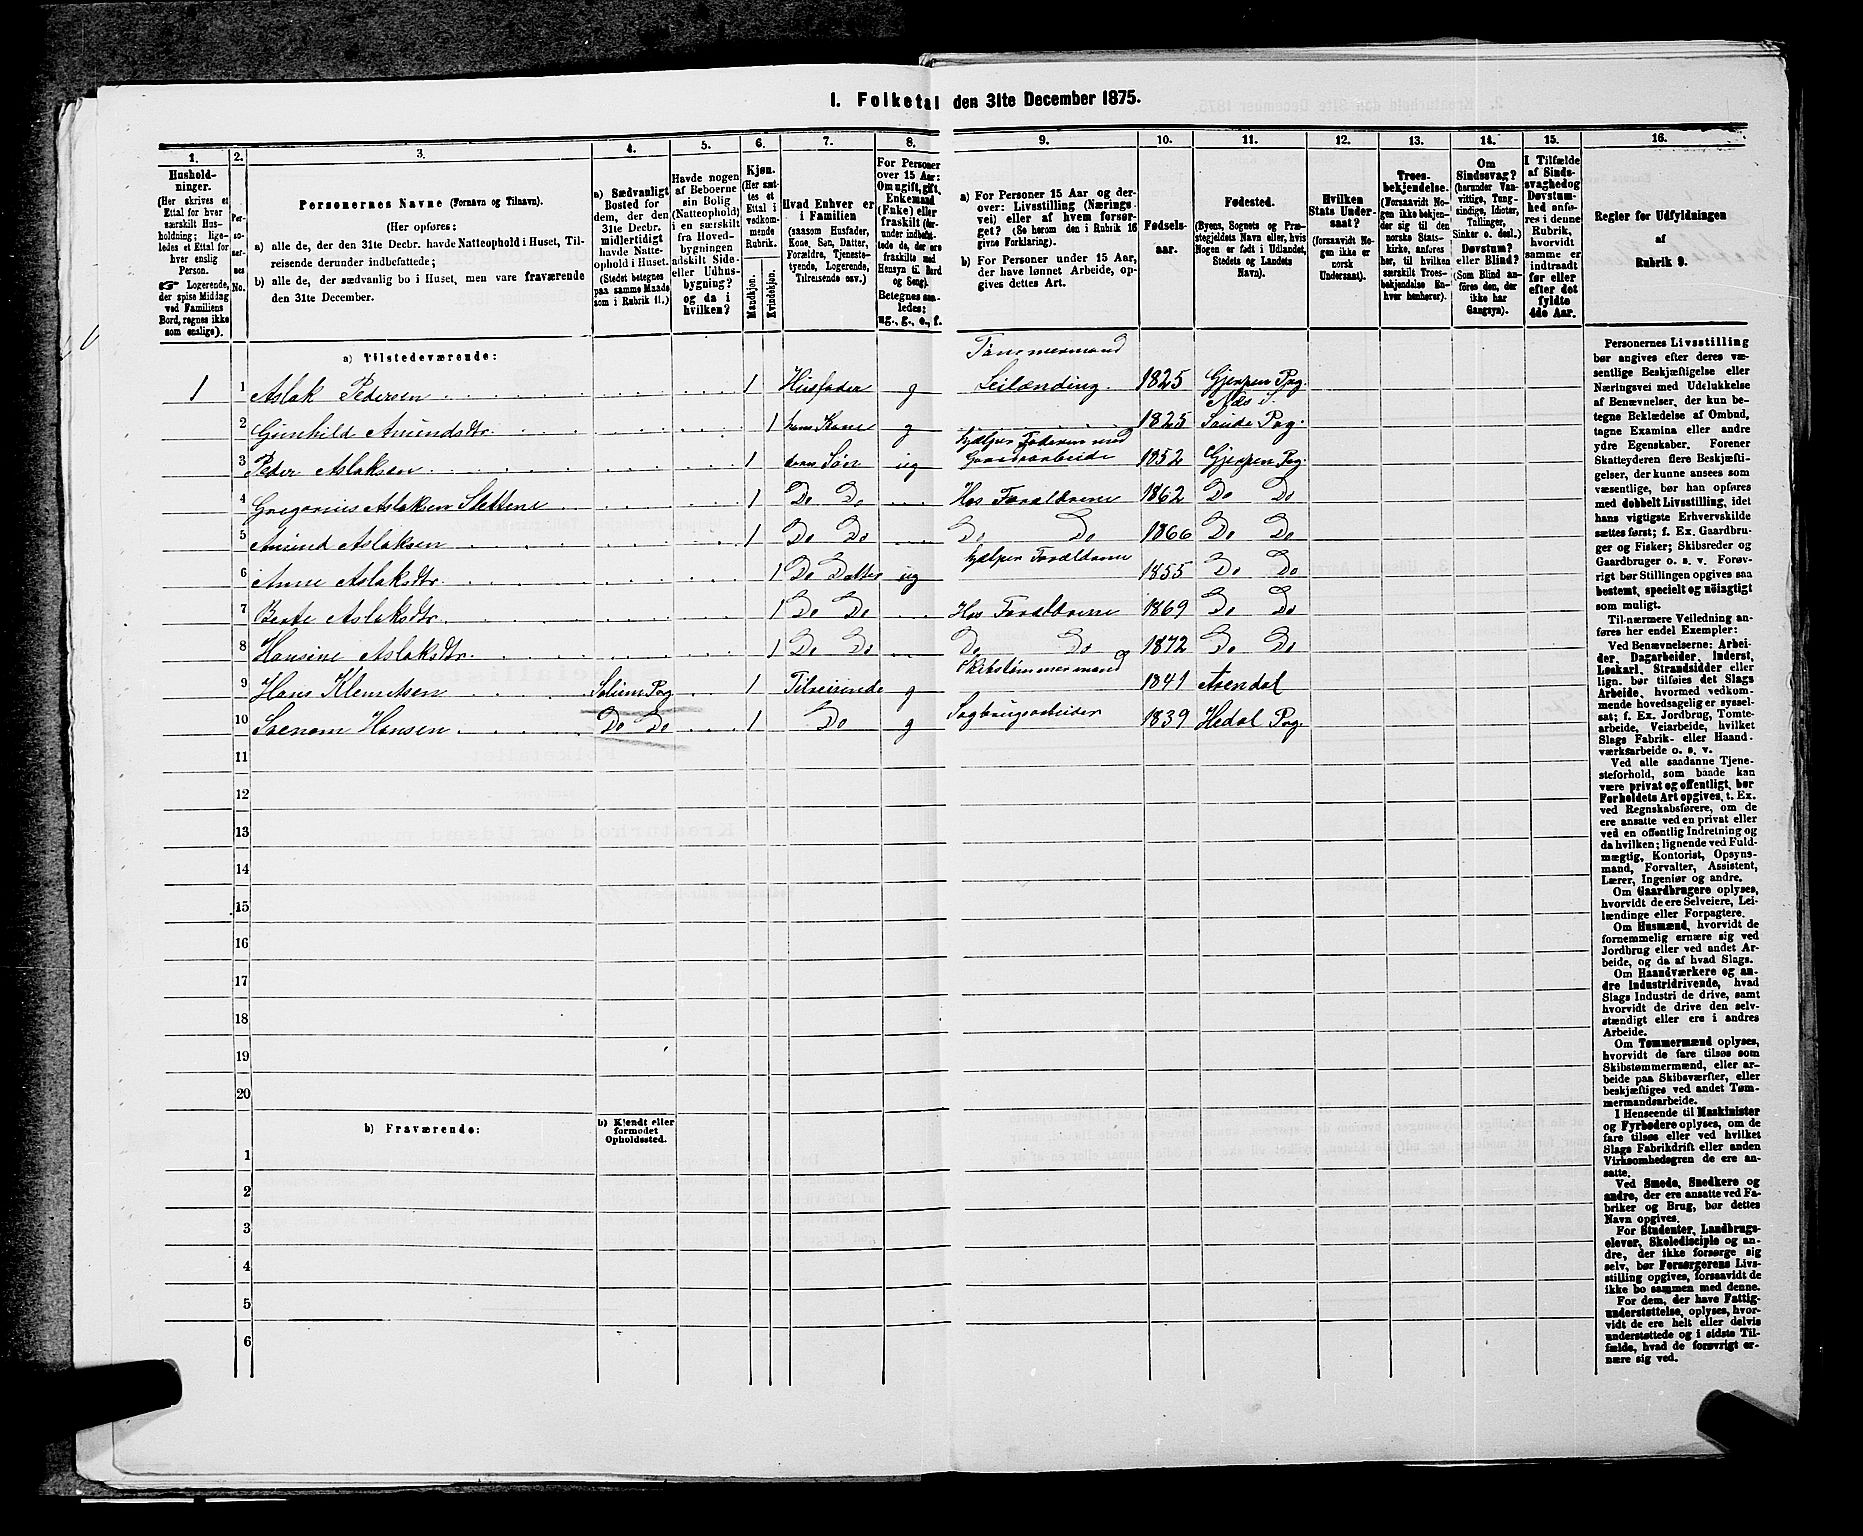 I. Folketal den 31te December 1875.
1. 2. 3. 4. 5. 6. 7. 8. 9. 10. 11. 12. 13. 14. 15. 16.
Hushold-
ninger.
(Her skrives et
Ettal for hver
særskilt Hus-
holdning; lige-
ledes et Ettal for
hver enslig
Person.
☞ Logerende,
der spise Middag
ved Familiens
Bord, regnes ikke
som enslige).
Per-
so-
ner-
nes
No.
Personernes Navne (Fornavn og Tilnavn).
(Her opføres:
a) alle de, der den 31te Decbr. havde Natteophold i Huset, Til-
reisende derunder indbefattede;
b) alle de, der sædvanlig bo i Huset, men vare fraværende
den 31te December.
a) Sædvanligt
Bosted for
dem, der den
31te Decbr.
midlertidigt
havde Natte-
ophold i Huset.
(Stedet betegnes
paa samme Maade
som i Rubrik 11.)
Havde nogen
af Beboerne
sin Bolig
(Natteophold)
i en særskilt
fra Hoved-
bygningen
adskilt Side-
eller Udhus-
bygning?
og da i
hvilken?
Kjøn.
(Her sæt-
tes et
Ettal i
vedkom-
mende
Rubrik.
Mandkjøn.
Kvindekjøn.
Hvad Enhver er
i Familien
(saasom Husfader,
Kone, Søn, Datter,
Forældre, Tjeneste-
tyende, Logerende,
Tilreisende osv.)
For Personer
over 15 Aar:
Om ugift, gift,
Enkemand
(Enke) eller
fraskilt (der-
under indbefat-
tede de, der ere
fraskilte med
Hensyn til Bord
og Seng).
Betegnes saa-
ledes:
ug., g., e., f.
a) For Personer 15 Aar og der-
over: Livsstilling (Nærings-
vei) eller af hvem forsør-
get? (Se herom den i Rubrik 16
givne Forklaring).
b) For Personer under 15 Aar,
der have lønnet Arbeide, op-
gives dettes Art.
Fødsels-
aar.
Fødested.
(Byens, Sognets og Præ-
stegjeldets Navn eller, hvis
Nogen er født i Udlandet,
Stedets og Landets
Navn).
Hvilken
Stats Under-
saat?
(forsaavidt No-
gen ikke er
norsk
Undersaat).
Troes-
bekjendelse.
(Forsaavidt No-
gen ikke bekjen-
der sig til den
norske Stats-
kirke, anføres
her, til hvilken
særskilt Troes-
bekjendelse En-
hver henhører).
Om
Sindssvag?
(herunder Van-
vittige, Tung-
sindige, Idioter,
Tullinger,
Sinker o. desl.)
Døvstum?
eller Blind?
(Som Blind an-
føres den, der
ikke har
Gangsyn).
I Tilfælde
af Sinds-
svaghed og
Døvstum-
hed anfø-
res i denne
Rubrik,
hvorvidt
samme er
indtraadt
før eller
efter det
fyldte
4de Aar.
Regler for Udfyldningen
af
Rubrik 9.
a) Tilstedeværende:
Tømmermand
1 1 Aslak Pedersen 1 Husfader g Leilænding. 1825 Gjerpen Pgj.
Næs S.
2 Gunhild Amundsdtr. 1 hans Kone g 1825 Saude Pgj.
hjælper Faderen med
3 Peder Aslaksen 1 deres Søn ug Gaardsarbeide 1852 Gjerpen Pgj.
4 Gregorius Aslaksen Slettene 1 Do Do Hos Forældrene 1862 Do Do
5 Amund Aslaksen 1 Do Do Do Do 1866 Do Do
hjælper Forældrene
6 Anne Aslaksdtr. 1 Do Datter ug 1855 Do Do
7 Berte Aslaksdtr. 1 Do Do Hos Forældrene 1869 Do Do
8 Hansine Aslaksdtr. 1 Do Do Do Do 1872 Do Do
Skibstømmermand
9 Hans Klemetsen Solum Pgj 1 Tilreisende g 1841 Arendal
10 Svenom Hansen Do Do 1 Do g Sagbrugsarbeider 1839 Hedal Pgj.
11
12
13
14
15
16
17
18
19
20
b) Fraværende:
b) Kjendt eller
formodet
Opholdssted.
1
2
3
4
5
6
Personernes Livsstilling
bør angives efter deres væ-
sentlige Beskjæftigelse eller
Næringsvei med Udelukkelse
af Benævnelser, der kun be-
tegne Beklædelse af Ombud,
tagne Examina eller andre
ydre Egenskaber. Forener
Skatteyderen flere Beskjæfti-
gelser, der kunne ansees som
væsentlige, bør han opføres
med dobbelt Livsstilling, idet
hans vigtigste Erhvervskilde
sættes først; f. Ex. Gaardbru-
ger og Fisker; Skibsreder og
Gaardbruger o. s. v. Forøv-
rigt bør Stillingen opgives saa
bestemt, specielt og nøiagtigt
som muligt.
Til nærmere Veiledning an-
føres her endel Exempler:
Ved Benævnelserne: Arbei-
der, Dagarbeider, Inderst,
Løskarl, Strandsidder eller
lign. bør tilføies det Slags
Arbeide, hvormed vedkom-
mende hovedsagelig er syssel-
sat; f. Ex. Jordbrug, Tomte-
arbeide, Veiarbeide, hvilket
Slags Fabrik- eller Haand-
værksarbeide o. s. v.
Ved alle saadanne Tjene-
steforhold, som baade kan
være privat og offentligt, bør
Forholdets Art opgives, t. Ex.
ved Regnskabsførere, om de
ere ansatte ved en privat eller
ved en offentlig Indretning og
da hvilken; lignende ved Fuld-
mægtig, Kontorist, Opsyns-
mand, Forvalter, Assistent,
Lærer, Ingeniør og andre.
Om Gaardbrugere oplyses,
hvorvidt de ere Selveiere, Lei-
lændinge eller Forpagtere.
Om Husmænd, hvorvidt de
fornemmelig ernære sig ved
Jordbrug eller ved andet Ar-
beide, og da af hvad Slags.
Om Haandværkere og an-
dre Industridrivende, hvad
Slags Industri de drive, samt
hvorvidt de drive den selv-
stændigt eller ere i andres
Arbeide.
Om Tømmermænd oplyses,
hvorvidt de fare tilsøs som
Skibstømmermænd, eller ar-
beide paa Skibsværfter, eller
beskjæftiges ved andet Tøm-
mermandsarbeide.
I Henseende til Maskinister
og Fyrbødere oplyses, om de
fare tilsøs eller ved hvilket
Slags Fabrikdrift eller anden
Virksomhedsgren de ere an-
satte.
Ved Smede, Snedkere og
andre, der ere ansatte ved Fa-
briker og Brug, bør dettes
Navn opgives.
For Studenter, Landbrugs-
elever, Skoledisciple og an-
dre, der ikke forsørge sig
selv, bør Forsørgerens Livs-
stilling opgives, forsaavidt de
ikke bo sammen med denne.
For dem, der have Fattig-
understøttelse, oplyses, hvor-
vidt de ere helt eller delvis
understøttede og i sidste Til-
fælde, hvad de forøvrigt er-
nære sig ved.